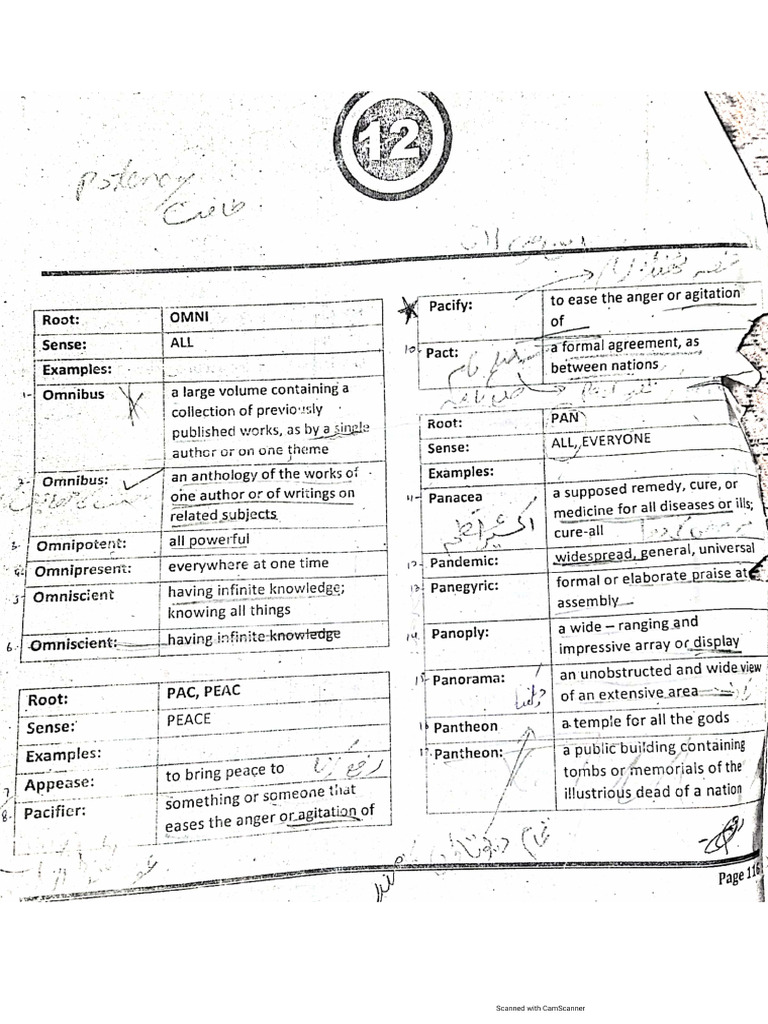 12
Potency
طاقت
Root: OMNI
Sense: ALL
Examples:
1- Omnibus a large volume containing a
collection of previously
published works, as by a single
author or on one theme
2- Omnibus: an anthology of the works of
one author or of writings on
related subjects
3- Omnipotent: all powerful
4- Omnipresent: everywhere at one time
5- Omniscient having infinite knowledge;
knowing all things
6- Omniscient: having infinite knowledge
Root: PAC, PEAC
Sense: PEACE
Examples:
7- Appease: to bring peace to
8- Pacifier: something or someone that
eases the anger or agitation of
Pacify: to ease the anger or agitation
of
10- Pact: a formal agreement, as
between nations
Root: PAN
Sense: ALL, EVERYONE
Examples:
11- Panacea a supposed remedy, cure, or
medicine for all diseases or ills;
cure-all
12- Pandemic: widespread, general, universal
13- Panegyric: formal or elaborate praise at
assembly
14- Panoply: a wide – ranging and
impressive array or display
15- Panorama: an unobstructed and wide view
of an extensive area
16 Pantheon a temple for all the gods
17- Pantheon: a public building containing
tombs or memorials of the
illustrious dead of a nation
Page 116
Scanned with CamScanner